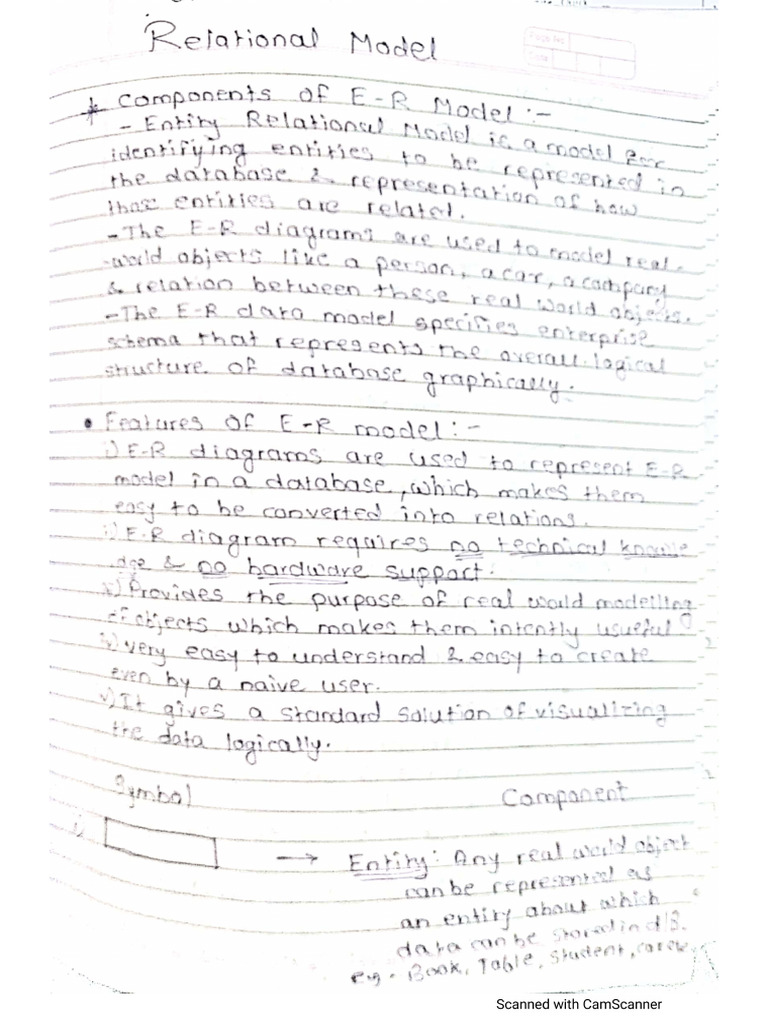 Relational Model
Page No.
Date
* Components of E-R Model :-
- Entity Relational Model is a model for
identifying entities to be represented in
the database & representation of how
those entities are related.
- The E-R diagrams are used to model real-
-world objects like a person, a car, a company
& relation between these real world objects.
- The E-R data model specifies enterprise
schema that represents the overall logical
structure of database graphically.
• Features of E-R model :-
i) E-R diagrams are used to represent E-R
model in a database, which makes them
easy to be converted into relations.
ii) E-R diagram requires no technical knowle
dge & no hardware support.
iii) Provides the purpose of real world modelling
of objects which makes them intently usueful
iv) very easy to understand & easy to create
even by a naive user.
v) It gives a standard solution of visualizing
the data logically.
Symbol Component
i) → Entity: Any real world object
can be represented as
an entity about which
data can be stored in d/B.
eg. Book, Table, Student, car
Scanned with CamScanner